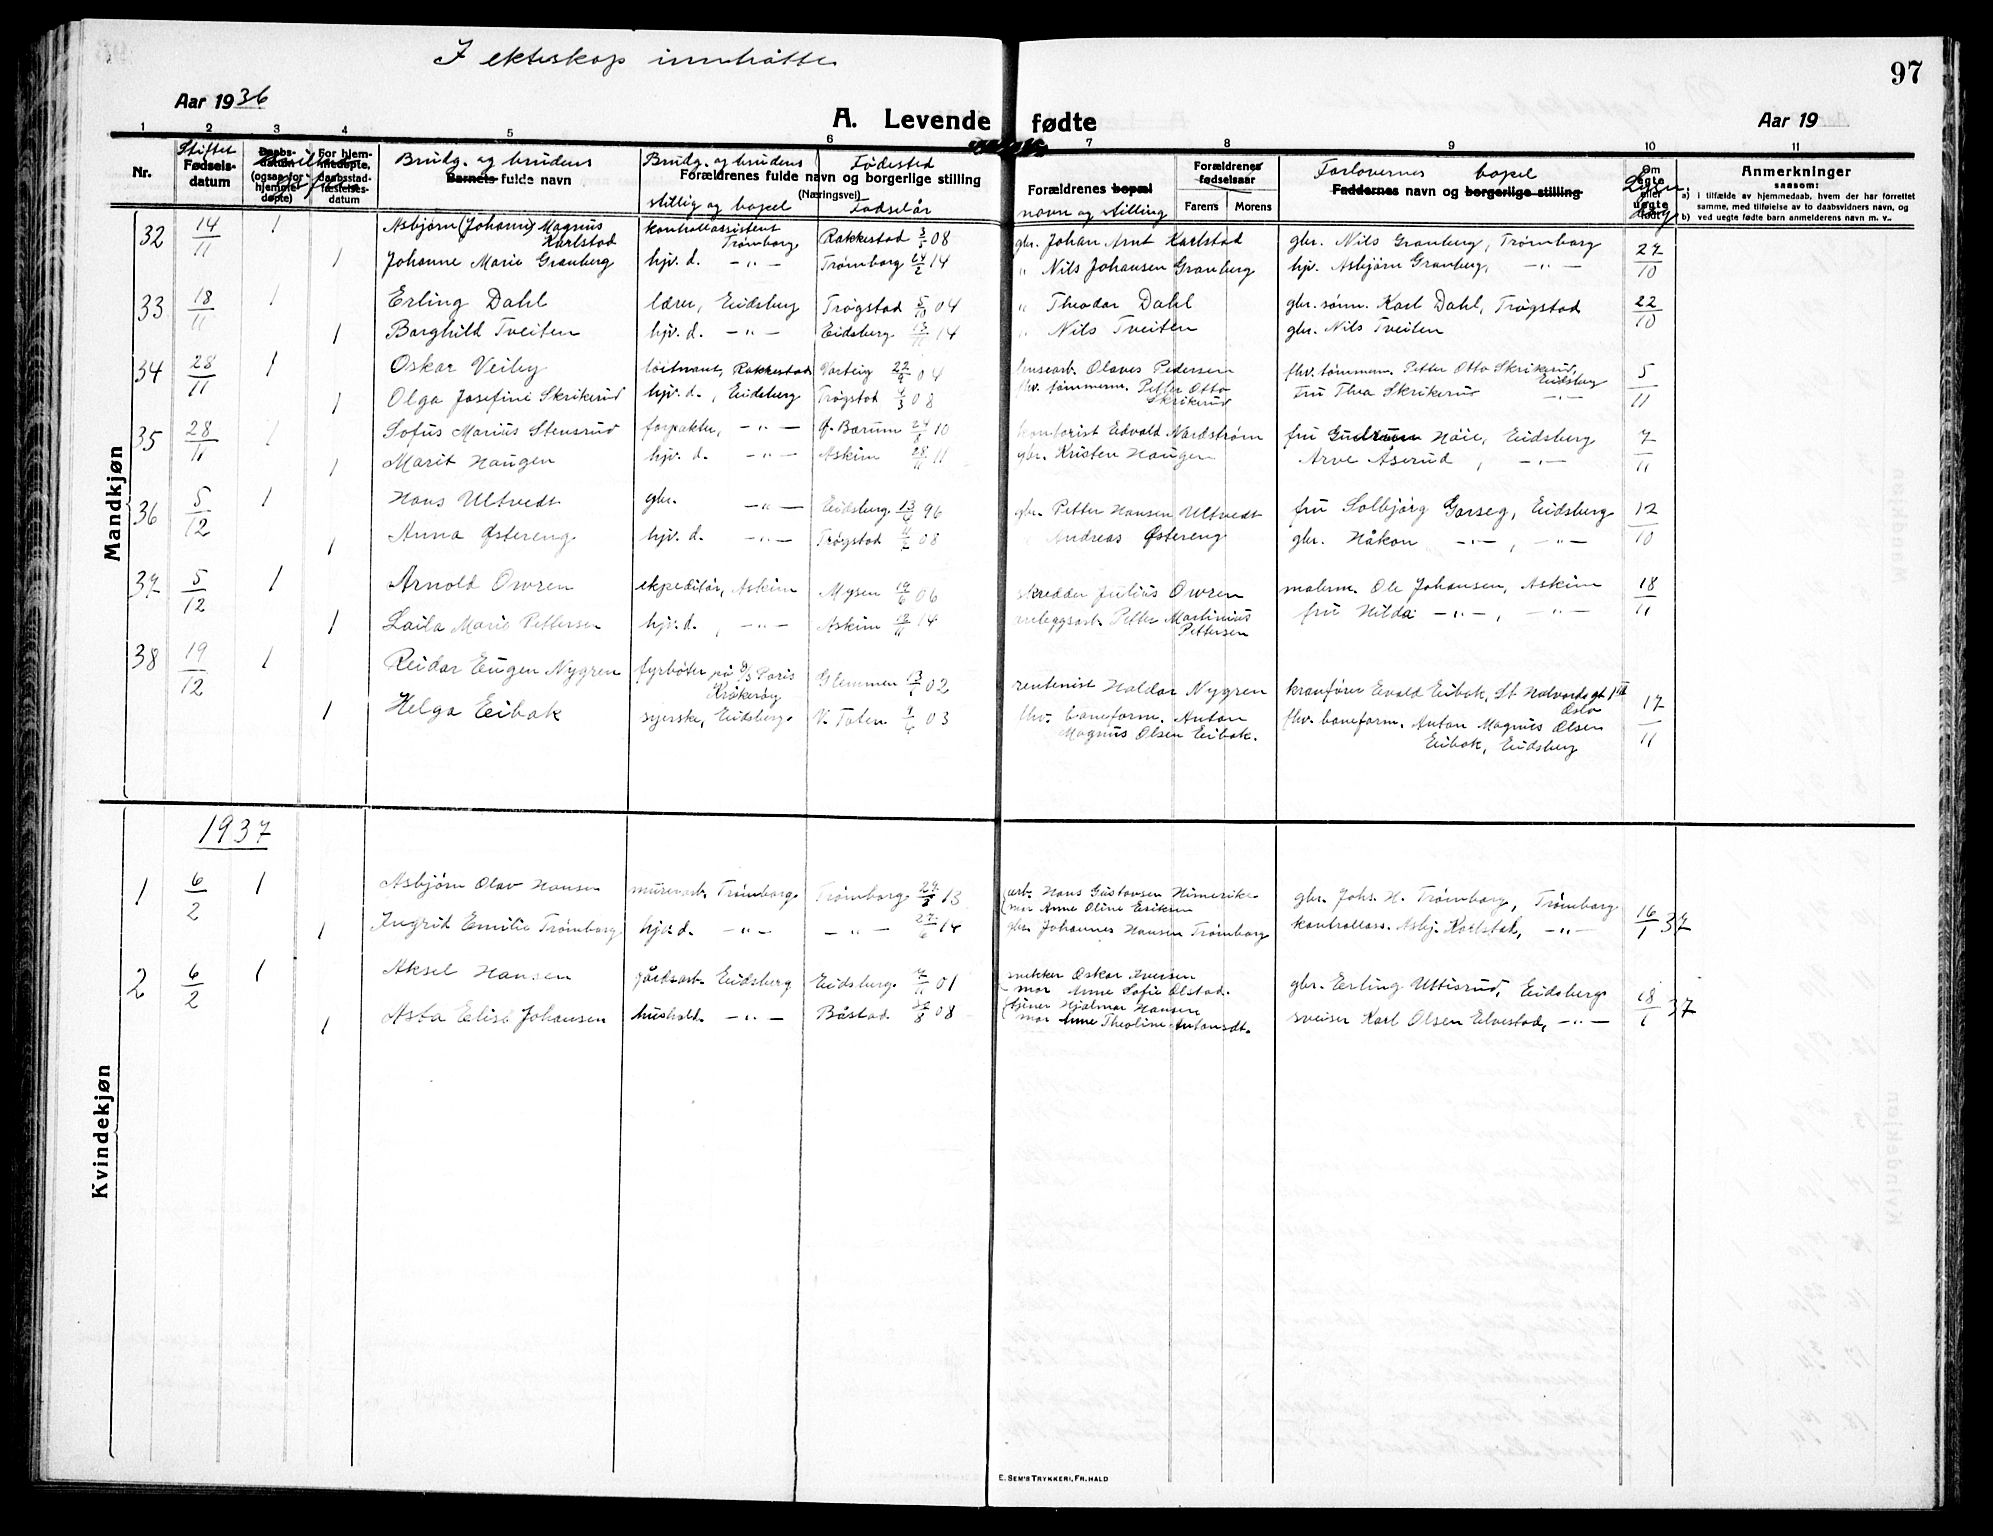 I ekteskap inntrådte
97
Aar 1936
A. Levende fødte
Aar 19
1 2 3 4 5 6 7 8 9 10 11
Nr.
Stiftet
Fødselsdatum
Daabsdatum (ogsaa for hjemmedøpte)
For hjemmedøpte, daabsstadfæstelsesdatum
Brudg. og brudens
Barnets fulde navn
Brudg. og brudens Fødested
Forældrenes fulde navn og borgerlige stilling
(Næringsvei)
stillig og bopel Fødselår
Forældrenes bopæl
navn og stilling
Forældrenes fødselsaar
Farens Morens
Forlovernes bopel
Faddernes navn og borgerlige stilling
Om ægte eller uegte født
Anmerkninger
saasom:
a) i tilfælde av hjemmedaab, hvem der har forrettet samme, med tilføielse av to daabsvidners navn, og
b) ved uegte fødte barn anmelderens navn m. v..
Mandkjøn
32 14/11 1 Asbjørn (Johanns) Magnus Karlstad kontrollassistent Trømborg Rakkestad 3/1 08 gbr. Johan Arnt Karlstad gbr. Nils Granberg, Trømborg 27/10
1 Johanne Marie Granberg hjv. d. —"— Trømborg 24/2 14 " Nils Johansen Granberg hjv. Asbjørn Granberg, —"—
33 18/11 1 Erling Dahl lærer, Eidsberg Trøgstad 5/10 04 " Theodor Dahl gbr. sønn. Karl Dahl, Trøgstad 22/10
1 Borghild Tveiten hjv. d. —"— Eidsberg 13/11 14 " Nils Tveiten gbr. Nils Tveiten
34 28/11 1 Oskar Veiby løitnant, Rakkestad Varteig 22/9 04 Olaves Pedersen fhv. tømmerm. Petter Otto Skrikerud, Eidsberg 5/11
1 Olga Josefine Skrikerud hjv. d., Eidsberg Trøgstad 4/3 08 fhv. tømmerm. Petter Otto Skrikerud fru Thea Skrikerud —"—
35 28/11 1 Sofus Marius Stensrud forpakter, —"— Ø. Bærum 24/8 10 kontorist Edvald Nordstrøm fru Gudrun Høie, Eidsberg 7/11
1 Marit Haugen hjv. d. —"— Askim 28/11 11 gbr. Kristen Haugen Arve Åserud, —"—
36 5/12 1 Hans Ultvedt gbr. —"— Eidsberg 96 gbr. Petter Hansen Ultvedt fru Solbjørg Garseg, Eidsberg 12/10
1 Anna Østereng hjv. d. —"— Trøgstad 08 " Andreas Østereng gbr. Håkon —"—, —"—
37 5/12 1 Arnold Owren ekspeditør, Askim Mysen 19/6 06 skredder Julius Owren malerm. Ole Johansen, Askim 18/11
1 Laila Marie Pettersen hjv. d., —"— Askim 14 anleggsarb. Petter Martinius Pettersen fru Hilda —"—, —"—
38 19/12 1 Reidar Eugen Nygren fyrbøter på D/S Paris Kråkerøy Glemmen 13/1 02 rentenist Haldor Nygren kranfører Evald Eibak, St. Halvards gt. 1 III Oslo 17/11
1 Helga Eibak syerske, Eidsberg V. Toten 1/4 03 fhv. baneform. Anton Magnus Olsen Eibak. fhv. baneform. Anton Magnus Olsen Eibak, Eidsberg
1937
Kvindekjøn
1 6/2 1 Asbjørn Olav Hansen murerarb. Trømborg Trømborg 13 arb. Hans Gustavsen Himerike gbr. Johs. H. Trømborg, Trømborg 16/1 37
mor Anne Oline Eriksen
1 Ingrid Emilie Trømborg hjv. d. —"— —"— 27/6 14 gbr. Johannes Hansen Trømborg kontrollass. Asbj. Karlstad, —"—
2 6/2 1 Aksel Hansen gårdsarb. Eidsberg Eidsberg 7/11 01 snekker Oskar Iversen gbr. Erling Uttisrud, Eidsberg 18/1 37
mor Anne Sofie Olstad.
1 Asta Elise Johansen hushold. —"— Båstad 26/8 08 Hjalmar Hansen sveiser Karl Olsen Elvestad, —"—
mor Anne Theoline Antonsdt.
E. SEM'S TRYKKERI, FR.HALD